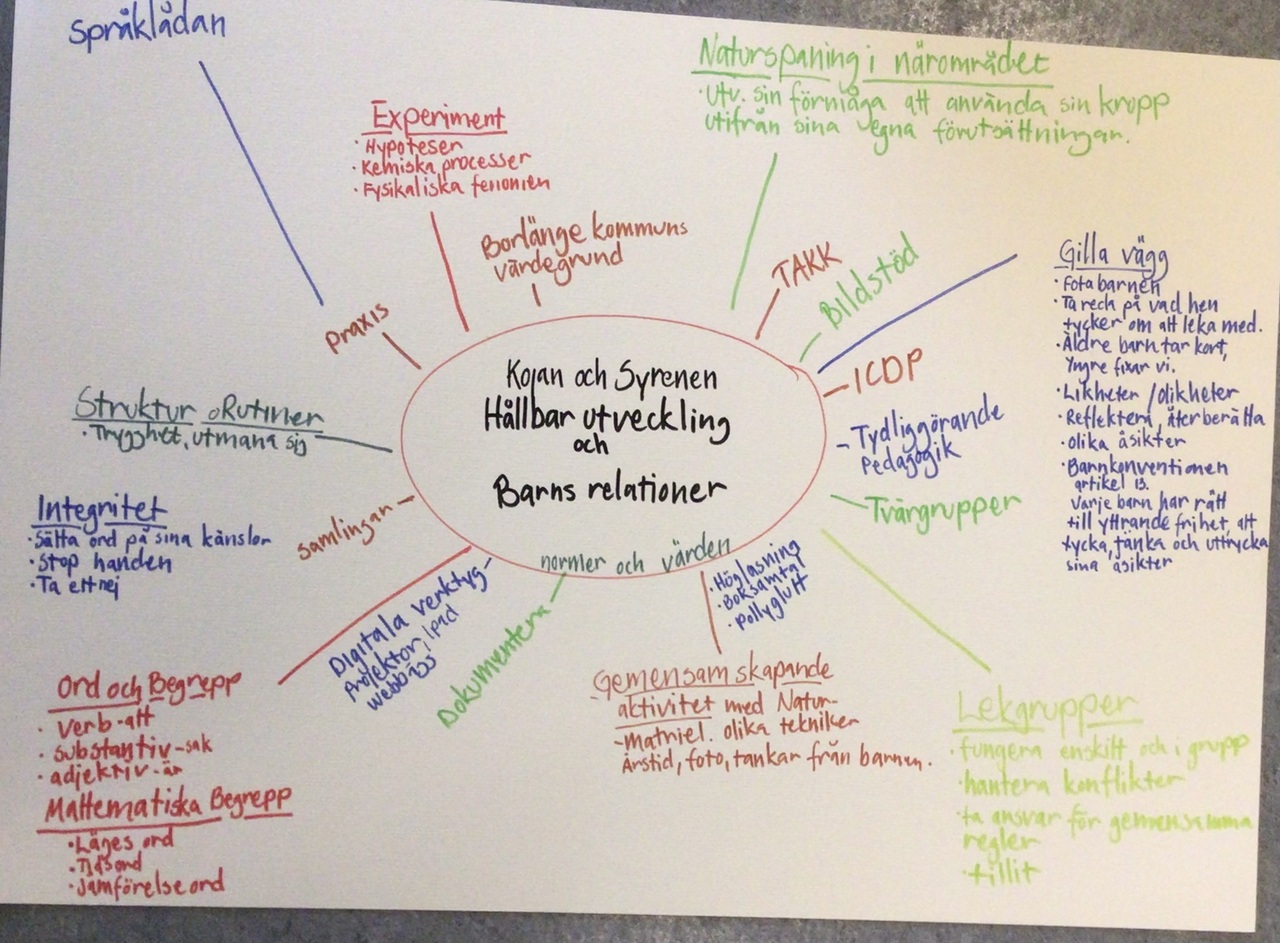 Språklådan
Experiment
· Hypoteser
· Kemiska processer
· Fysikaliska fenomen
Borlänge kommuns
värdegrund
Naturspaning i närområdet
· Utv. sin förmåga att använda sin kropp
utifrån sina egna förutsättningar.
TAKK
Bildstöd
Gilla vägg
· Fota barnen
· Ta reda på vad hen
tycker om att leka med.
· Äldre barn tar kort,
Yngre fixar vi.
· Likheter / olikheter
· Reflektera, återberätta
· olika åsikter
· Barnkonventionen
artikel 13.
Varje barn har rätt
till yttrande frihet, att
tycka, tänka och uttrycka
sina åsikter
Praxis
Kojan och Syrenen
Hållbar utveckling
och
Barns relationer
normer och värden
ICDP
Tydliggörande
Pedagogik
Tvärgrupper
Struktur o Rutiner
· Trygghet, utmana sig
Integritet
· Sätta ord på sina känslor
· Stop handen
· Ta ett nej
samlingar
Digitala verktyg
Projektor, Ipad
webbägg
Dokumentera
· Högläsning
· Boksamtal
· Pollyglutt
Ord och Begrepp
· Verb-att
· substantiv-sak
· adjektiv-är
Mattematiska Begrepp
· Läges ord
· Tidsord
· Jämförelse ord
Gemensam skapande
aktivitet med Natur-
-matriel. olika tekniker
Årstid, foto, tankar från barnen.
Lekgrupper
· fungera enskilt och i grupp
· hantera konflikter
· ta ansvar för gemensamma
regler
· tillit